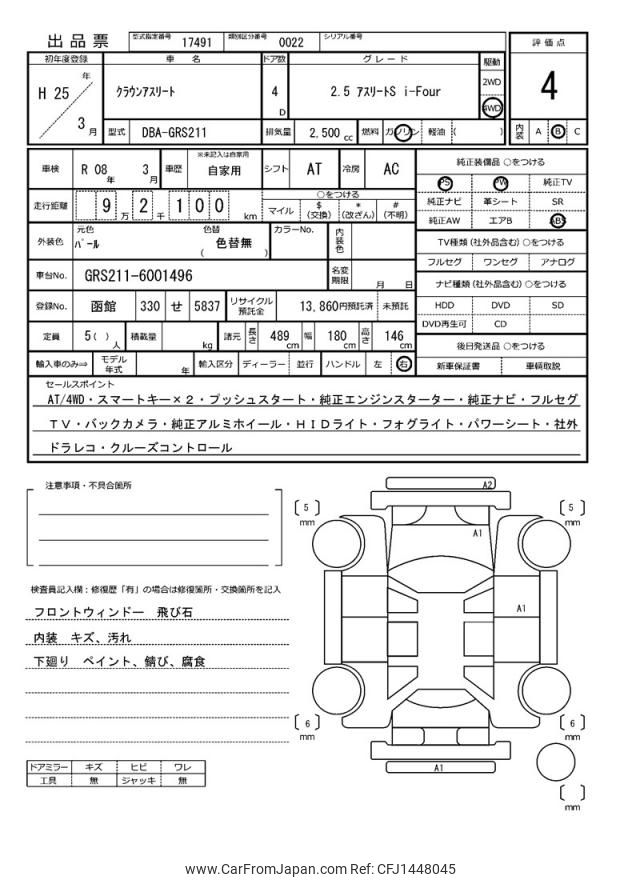 出品票
型式指定番号 17491 類別区分番号 0022 シリアル番号
評価点
4
初年度登録 車名 ドア数 グレード 駆動
H 25 年 3 月
クラウンアスリート
4 D
2.5 アスリートS i-Four
2WD
4WD
型式 DBA-GRS211 排気量 2,500 cc 燃料 ガソリン 軽油 ( )
内装 A B C
車検 R 08 年 3 月 車歴 ※未記入は自家用 自家用 シフト AT 冷房 AC
純正装備品 ○をつける
PS PW 純正TV
純正ナビ 革シート SR
純正AW エアB ABS
走行距離 9 2 1 0 0 万 千 km
○をつける
マイル $ (交換) * (改ざん) # (不明)
外装色 元色 パール 色替 ( 色替無 ) カラーNo. 内装色
TV種類 (社外品含む) ○をつける
フルセグ ワンセグ アナログ
車台No. GRS211-6001496 名変期限 月 日
ナビ種類 (社外品含む) ○をつける
HDD DVD SD
DVD再生可 CD
登録No. 函館 330 せ 5837 リサイクル預託金 13,860円預託済 未預託
定員 5( ) 人 積載量 kg 諸元 長さ 489 cm 幅 180 cm 高さ 146 cm
後日発送品 ○をつける
新車保証書 車輌取説
輸入車のみ⇒ モデル年式 年 輸入区分 ディーラー 並行 ハンドル 左 右
セールスポイント
AT/4WD・スマートキー×2・プッシュスタート・純正エンジンスターター・純正ナビ・フルセグ
TV・バックカメラ・純正アルミホイール・HIDライト・フォグライト・パワーシート・社外
ドラレコ・クルーズコントロール
注意事項・不具合箇所
検査員記入欄：修復歴「有」の場合は修復箇所・交換箇所を記入
フロントウィンドー 飛び石
内装 キズ、汚れ
下廻り ペイント、錆び、腐食
ドアミラー キズ ヒビ ワレ
工具 無 ジャッキ 無
A2
5 mm
5 mm
A1
A1
6 mm
6 mm
A1
mm
www.CarFromJapan.com Ref: CFJ1448045